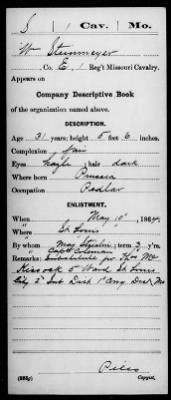 S | 1 | Cav. | Mo.
Wm Steinmeyer
, Co. E, 1 Reg't Missouri Cavalry.
Appears on
Company Descriptive Book
of the organization named above.
DESCRIPTION.
Age 31 years; height 5 feet 6 inches.
Complexion Fair
Eyes hazle; hair dark
Where born Prussia
Occupation Pedlar
ENLISTMENT.
When May 10", 1864.
Where St Louis
By whom Maj ; term 3 y'rs.
Remarks: Substitute for Thos Mc
5" Ward St Louis
City 2" Sub Dist 1" Cong Dist Mo
(383g)
Copyist.